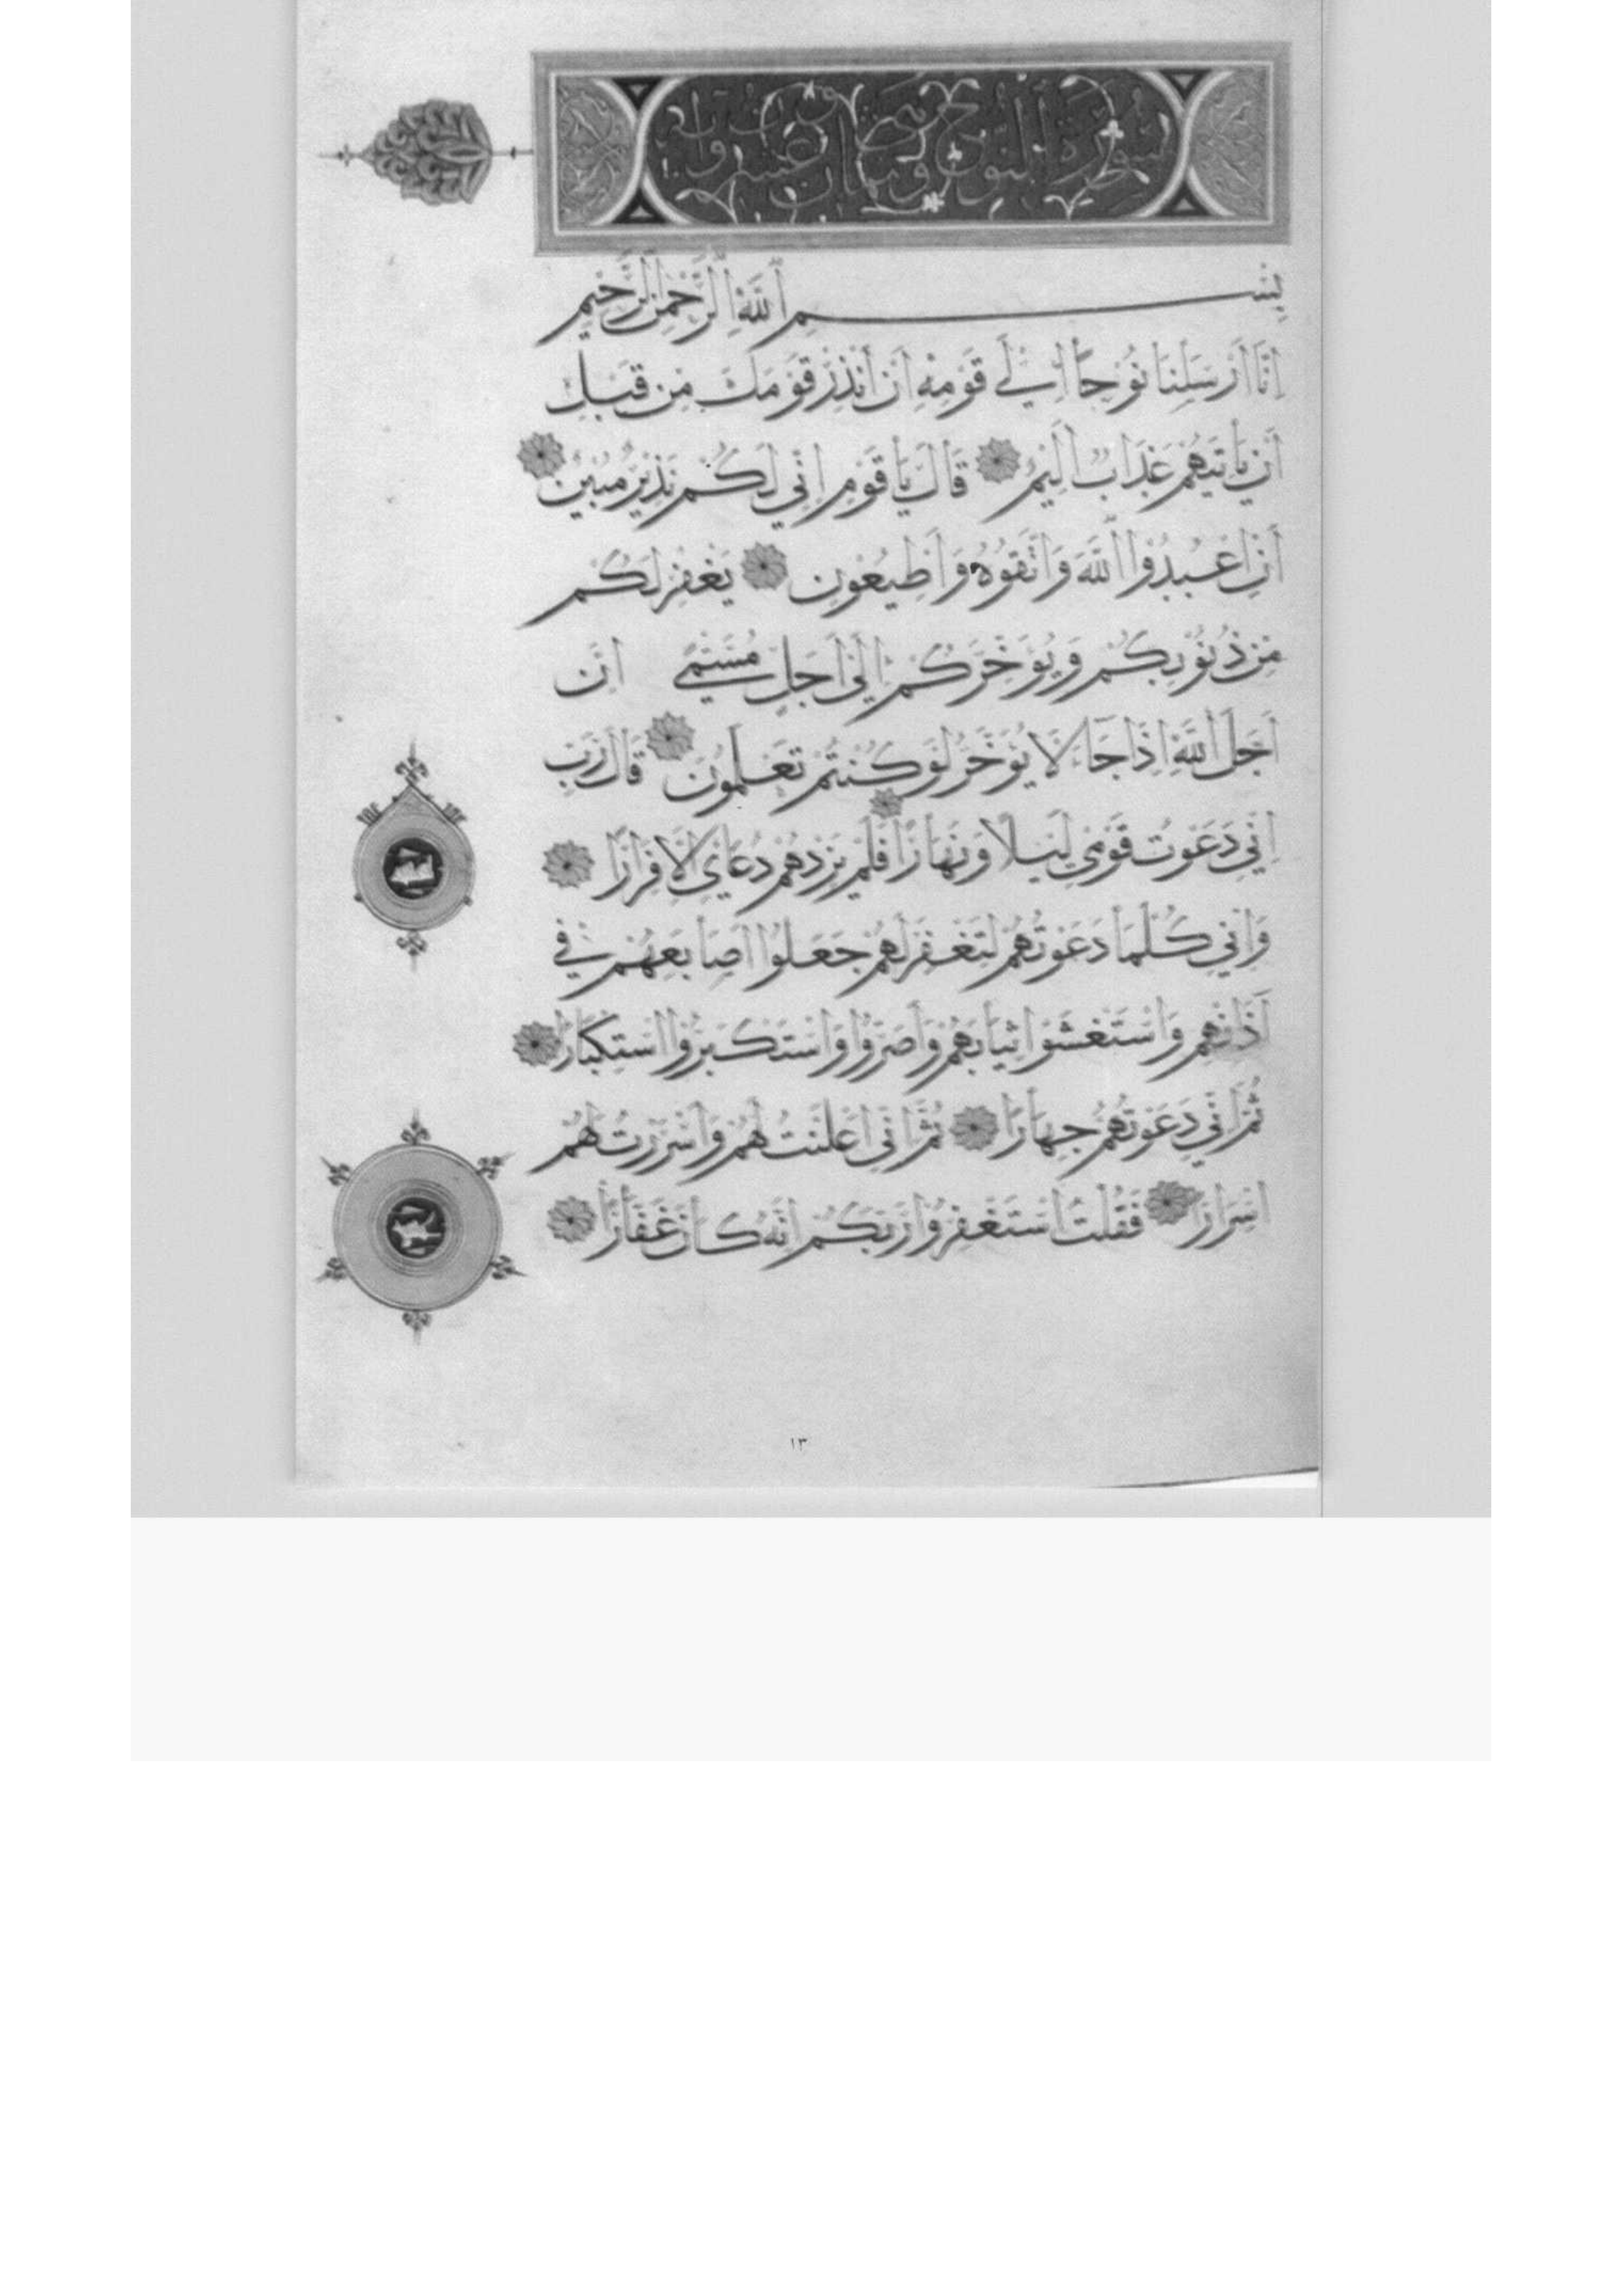 سورة النوح وثمان وعشرون آيات
بِسْمِ اللَّهِ الرَّحْمَنِ الرَّحِيمِ
اِنَّا اَرْسَلْنَا نُوْحًا اِلَى قَوْمِهِ اَنْ اَنْذِرْ قَوْمَكَ مِنْ قَبْلِ
اَنْ يَأْتِيَهُمْ عَذَابٌ اَلِيْمٌ قَالَ يَا قَوْمِ اِنِّي لَكُمْ نَذِيْرٌ مُبِيْنٌ
اَنِ اعْبُدُوْا اللَّهَ وَاتَّقُوْهُ وَاَطِيْعُوْنِ يَغْفِرْ لَكُمْ
مِنْ ذُنُوْبِكُمْ وَيُؤَخِّرْكُمْ اِلَى اَجَلٍ مُسَمًّى اِنَّ
اَجَلَ اللَّهِ اِذَا جَاءَ لَا يُؤَخَّرُ لَوْ كُنْتُمْ تَعْلَمُوْنَ قَالَ رَبِّ
اِنِّي دَعَوْتُ قَوْمِي لَيْلًا وَنَهَارًا فَلَمْ يَزِدْهُمْ دُعَائِي اِلَّا فِرَارًا
وَاِنِّي كُلَّمَا دَعَوْتُهُمْ لِتَغْفِرَ لَهُمْ جَعَلُوْا اَصَابِعَهُمْ فِي
آذَانِهِمْ وَاسْتَغْشَوْا ثِيَابَهُمْ وَاَصَرُّوْا وَاسْتَكْبَرُوْا اسْتِكْبَارًا
ثُمَّ اِنِّي دَعَوْتُهُمْ جِهَارًا ثُمَّ اِنِّي اَعْلَنْتُ لَهُمْ وَاَسْرَرْتُ لَهُمْ
اِسْرَارًا فَقُلْتُ اسْتَغْفِرُوْا رَبَّكُمْ اِنَّهُ كَانَ غَفَّارًا
١٣